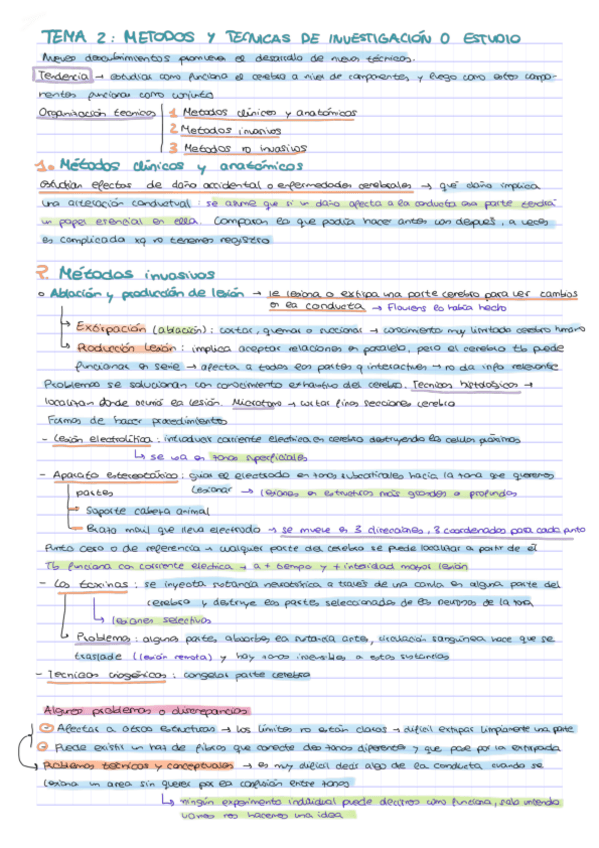 TEMA 2: METODOS Y TECNICAS DE INVESTIGACIÓN O ESTUDIO
Nuevos descubrimientos promueve el desarrollo de nuevas técnicas.
Tendencia → estudiar como funciona el cerebro a nivel de componentes, y luego como estos compo-
nentes funcionan como conjunto
Organización tecnicas 1 Metodos clínicos y anatómicos
2 Metodos invasivos
3 Metodos no invasivos
1. Métodos clínicos y anatómicos
estudian efectos de daño accidental o enfermedades cerebrales → que daño implica
una alteración conductual : se asume que si un daño afecta a la conducta esa parte tendrá
un papel esencial en ella. Comparan lo que podía hacer antes con después, a veces
es complicada xq no tenemos registro
2. Métodos invasivos
o Ablación y producción de lesión → le lesiona o extirpa una parte cerebro para ver cambios
en la conducta → Flourens lo había hecho
↳ Extirpación (ablación) : cortar, quemar o succionar → conocimiento muy limitado cerebro humano
↳ Producción lesión : implica aceptar relaciones en paralelo, pero el cerebro tb puede
funcionar en serie → afecta a todas las partes q interactuen → no da info relevante
Problemas se solucionan con conocimiento exhaustivo del cerebro. Tecnicas histologicas →
localizan donde ocurrió la lesión. Microtomo → cortar finas secciones cerebro
Formas de hacer procedimientos
- Lesión electrolítica : introducir corriente electrica en cerebro destruyendo las celulas próximas
↳ se usa en zonas superficiales
- Aparato estereotáxico : guiar el electrodo en zonas subcorticales hacia la zona que queremos
partes lesionar → lesiones en estructuras más grandes o profundas
Soporte cabeza animal
Brazo movil que lleva electrodo → se mueve en 3 direcciones, 3 coordenadas para cada punto
Punto cero o de referencia → cualquier parte del cerebro se puede localizar a partir de él
Tb funciona con corriente electrica → a + tiempo y + intensidad mayor lesión
- Las toxinas : se inyecta sustancia neurotóxica a traves de una canula en alguna parte del
cerebro y destruye las partes seleccionadas de las neuronas de la zona
↳ lesiones selectivas
↳ Problema : algunas partes absorben la sustancia antes, circulación sanguínea hace que se
traslade (lesión remota) y hay zonas insensibles a estas sustancias
- Tecnicas criogénicas : congelar parte cerebro
Algunos problemas o discrepancias
Afectar a otras estructuras → los límites no están claros → dificil extirpar limpiamente una parte
Puede existir un haz de fibras que conecte dos zonas diferentes y que pase por la extirpada
Problemas tecnicos y conceptuales → es muy dificil decir algo de la conducta cuando se
lesiona un area sin querer por la confusión entre zonas
↳ ningún experimento individual puede decirnos como funciona, solo uniendo
varios nos hacemos una idea